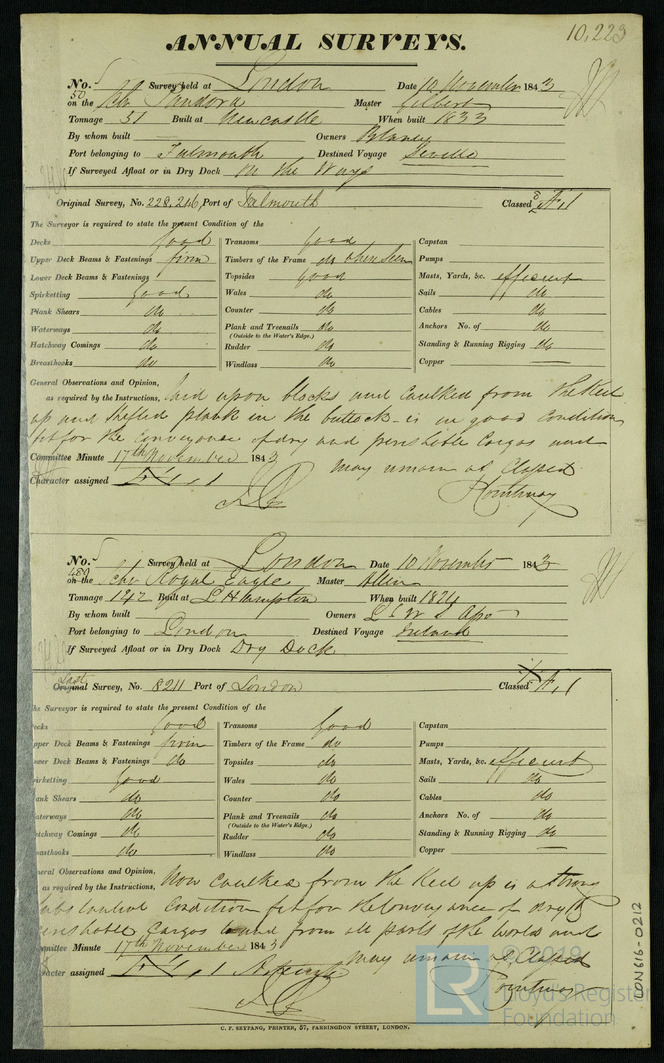 10,223
ANNUAL SURVEYS.
No. 50 Survey held at London Date 10 November 1843
on the Schr Pandora Master Gilbert
Tonnage 51 Built at Newcastle When built 1833
By whom built Owners Blaney
Port belonging to Falmouth Destined Voyage Seville
If Surveyed Afloat or in Dry Dock On the Ways
Original Survey, No. 228,246 Port of Falmouth Classed Æ 1
The Surveyor is required to state the present Condition of the
Decks good Transoms good Capstan
Upper Deck Beams & Fastenings firm Timbers of the Frame do when seen Pumps
Lower Deck Beams & Fastenings Topsides good Masts, Yards, &c. efficient
Spirketting good Wales do Sails do
Plank Shears do Counter do Cables do
Waterways do Plank and Treenails do Anchors No. of do
(Outside to the Water's Edge.)
Hatchway Comings do Rudder do Standing & Running Rigging do
Breasthooks do Windlass do Copper
General Observations and Opinion,
as required by the Instructions, laid upon blocks and caulked from the Keel
up and shifted plank in the buttock - is in good condition
fit for the conveyance of dry and perishable Cargos and
Committee Minute 17th November 1843 may remain as Classed
Character assigned Æ 1
No. 480 Survey held at London Date 10 November 1843
on the Schr Royal Eagle Master Allen
Tonnage 142 Built at L Hampton When built 1824
By whom built Owners
Port belonging to London Destined Voyage Ireland
If Surveyed Afloat or in Dry Dock Dry Dock
Last
Original Survey, No. 8211 Port of London Classed Æ 1
The Surveyor is required to state the present Condition of the
Decks good Transoms good Capstan
Upper Deck Beams & Fastenings firm Timbers of the Frame do Pumps
Lower Deck Beams & Fastenings do Topsides do Masts, Yards, &c. efficient
Spirketting good Wales do Sails do
Plank Shears do Counter do Cables do
Waterways do Plank and Treenails do Anchors No. of do
(Outside to the Water's Edge.)
Hatchway Comings do Rudder do Standing & Running Rigging do
Breasthooks do Windlass do Copper
General Observations and Opinion,
as required by the Instructions, Now caulked from the Keel up is a strong
substantial Condition fit for the Conveyance of dry &
perishable Cargos to and from all parts of the World and
Committee Minute 17th November 1843 may remain as Classed
Character assigned Æ 1
C. F. SEYFANG, PRINTER, 57, FARRINGDON STREET, LONDON.
LON616-0212
LR
© 2019
Lloyd's Register
Foundation